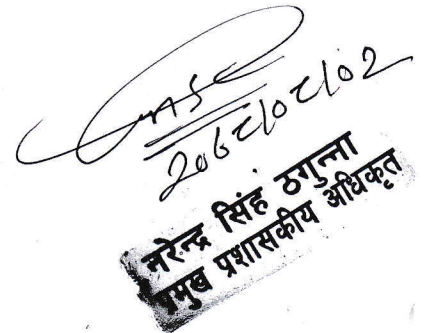 २०६८/०८/०२
नरेन्द्र सिंह ठगुन्ना
प्रमुख प्रशासकीय अधिकृत